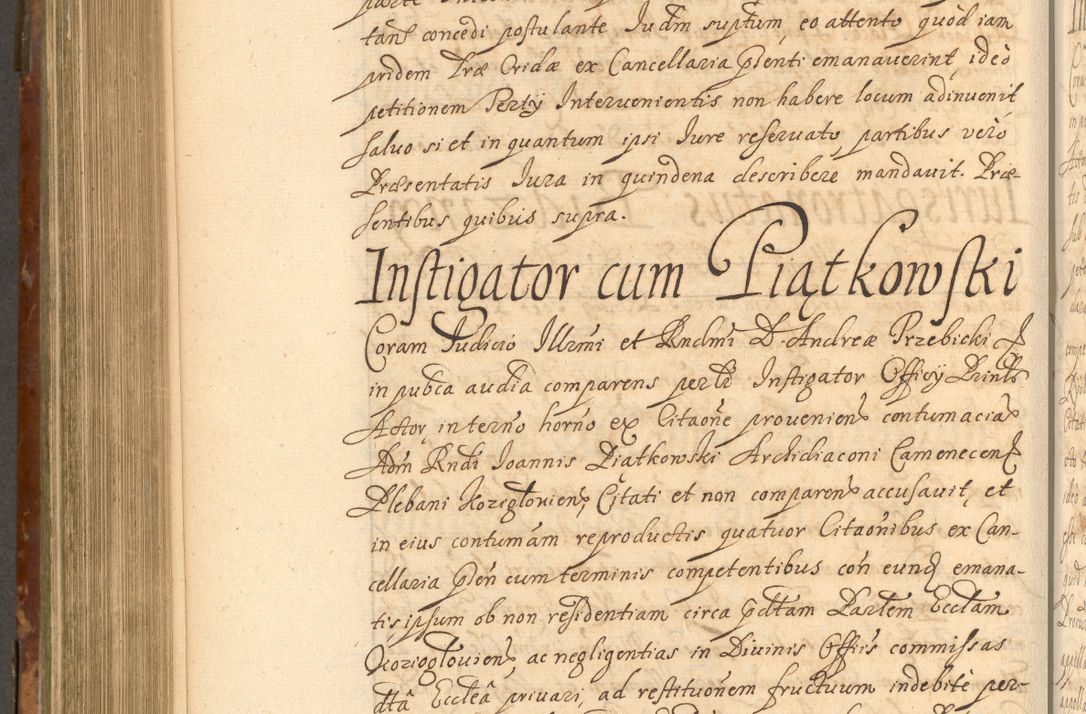 tanẽ concedi postulante Iudm̃ suptum, eo attento quod iam
pridem Præ Cridæ ex Cancellaria p̃senti emanaverint, ideo
petitionem Pertÿ Intervenientis non habere locum adinuenit
salvo si et in quantum ipsi Iure reservato, partibus verò
Præsentatis Iura in quindena describere mandavit. Præ-
sentibus quibus supra.
Instigator cum Piątkowski
Coram Iudicio Illrm̃i et Rndm̃i D. Andreæ Przebicki
in pub̃ca aud̃ia comparens per Instigator Officÿ
Actor, in terno horno ex Citaõne provenien contumacia
Adm̃ Rndi Ioannis Piątkowski Archidiaconi Camenecens
Plebani Kozieglovien, Citati et non comparen accusavit, et
in eius contumam reproductis quatuor Citaõnibus ex Can-
cellaria p̃sen eum terminis competentibus coñ eund emana-
tis ipsum ob non residentiam circa p̃dctam Parlem Ecclam
Koziogłovien, ac negligentias in Divinis Offiis commissas
dtã Eccleã privari, ad restituõnem fructuum indebitè per-